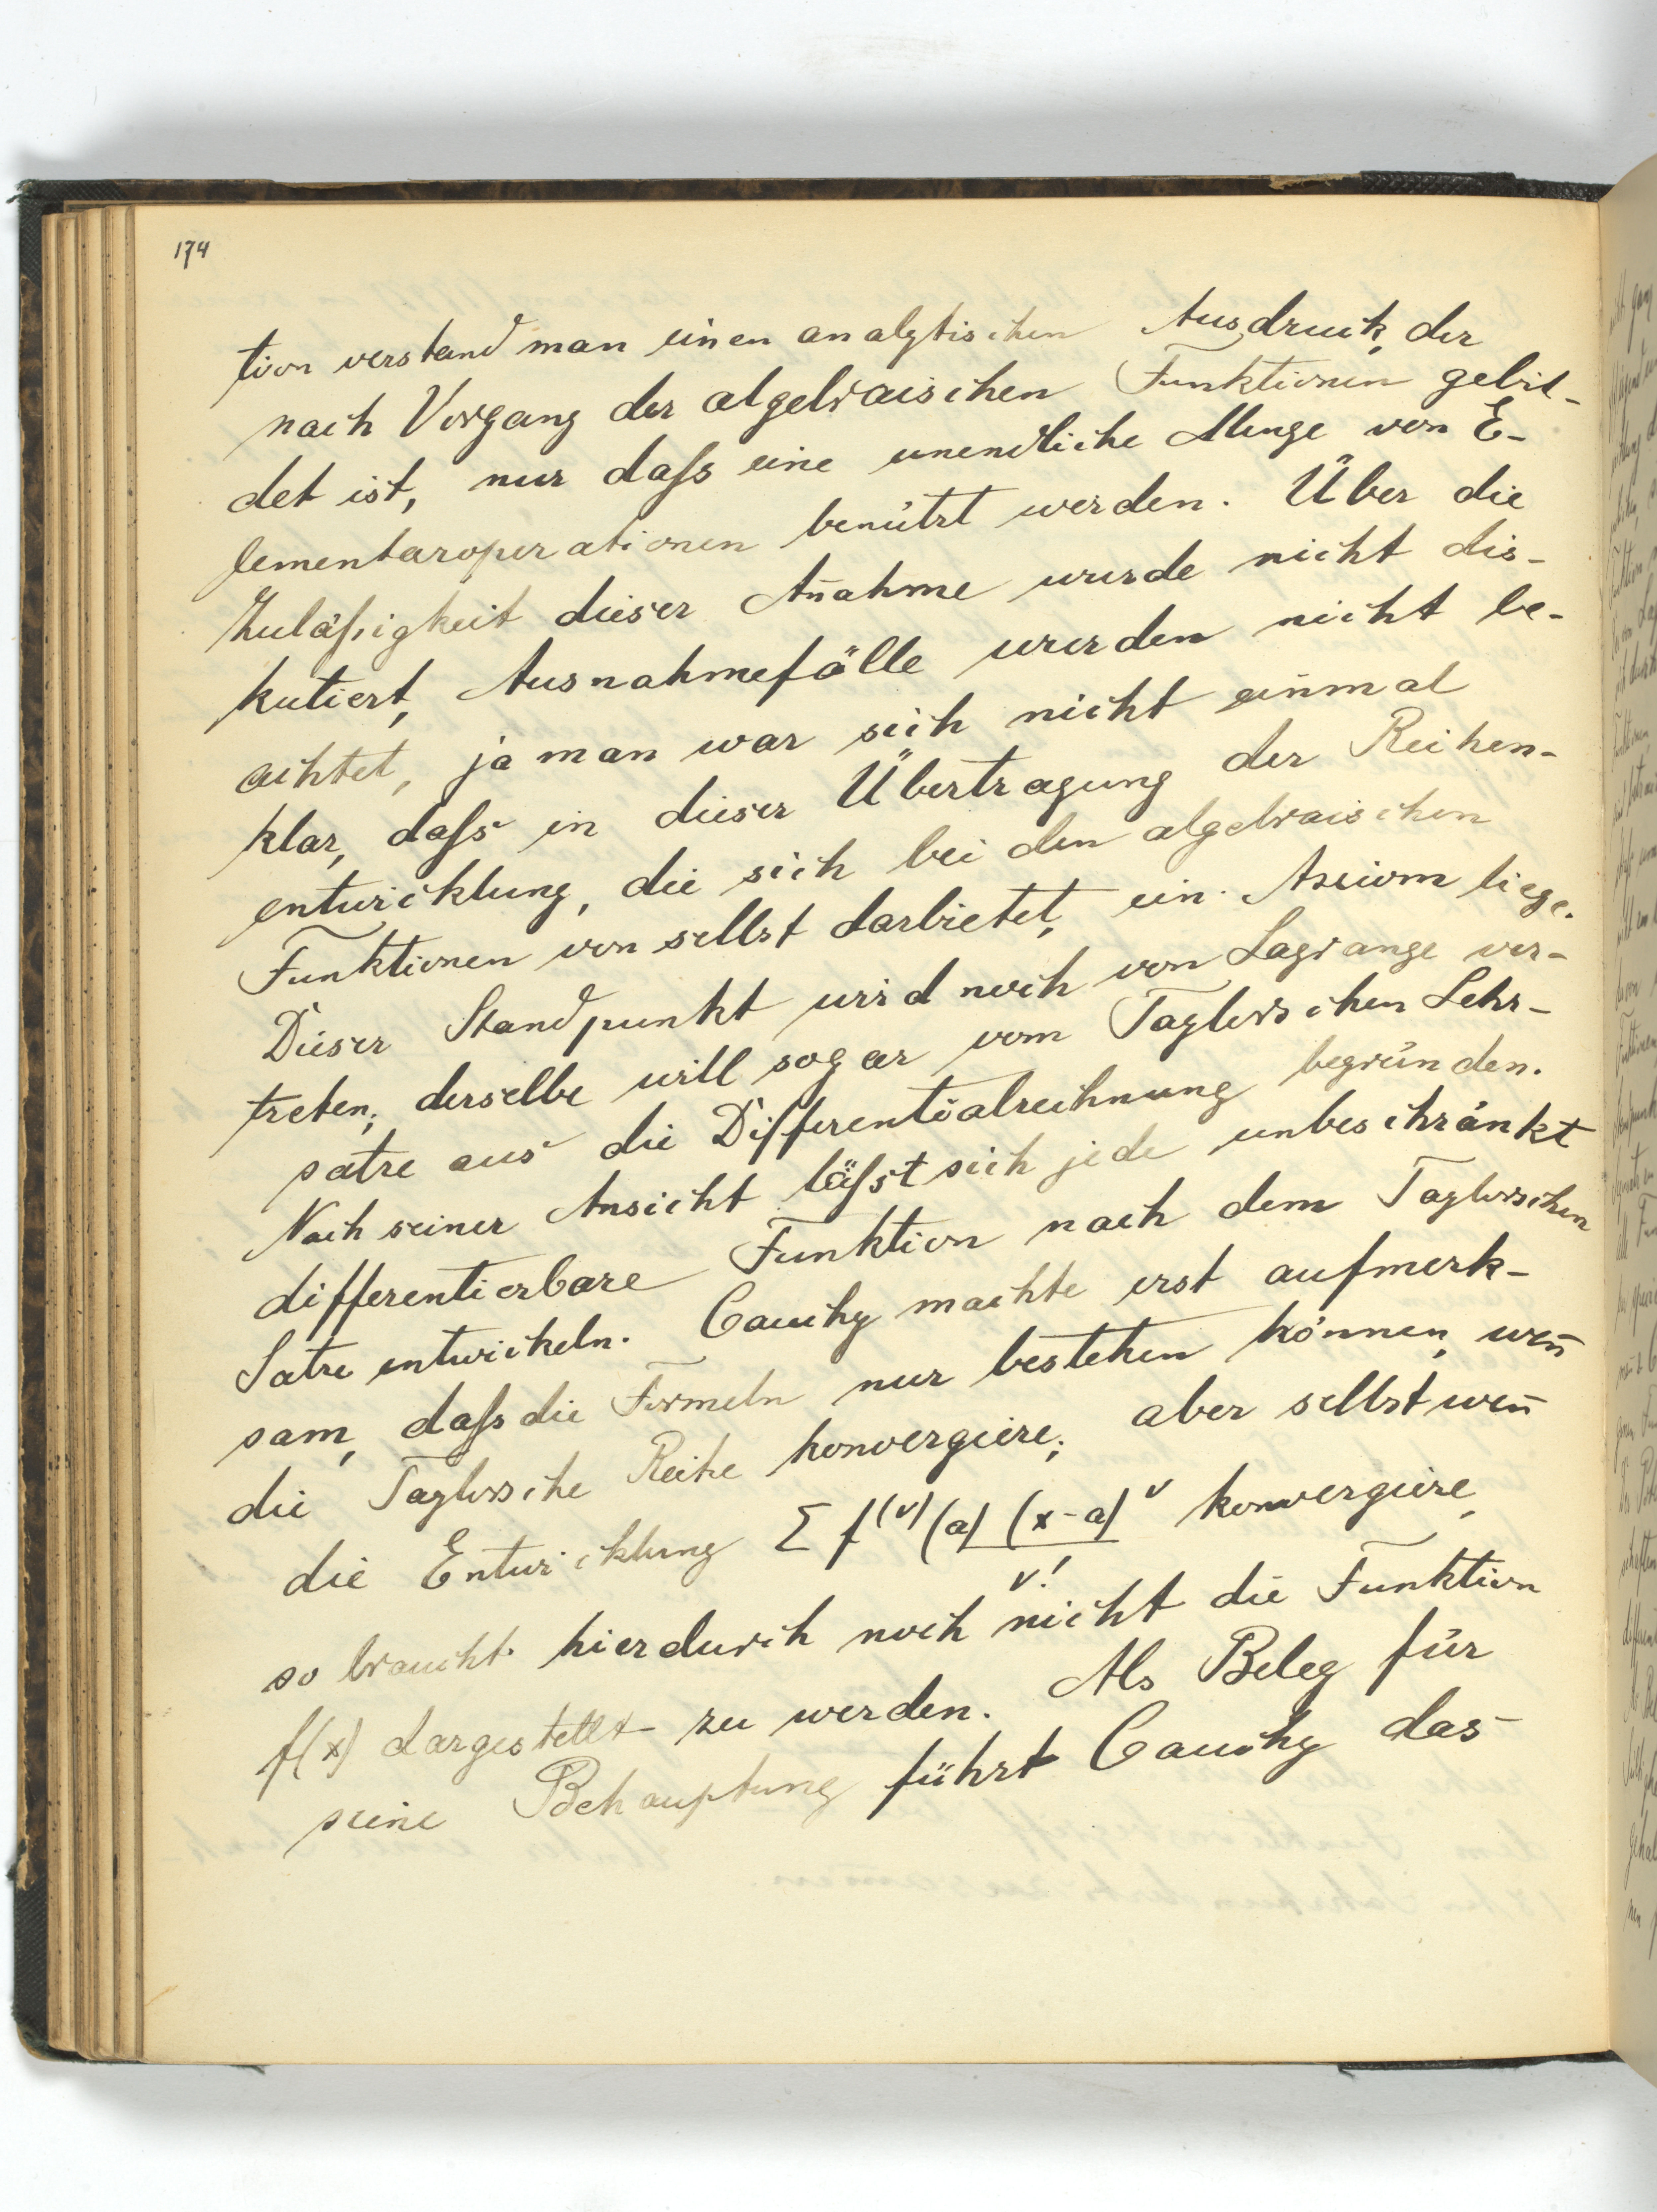 174
tion verstand man einen analytischen Ausdruck, der
nach Vorgang der algebraischen Funktionen gebil-
det ist, nur daſs eine unendliche Menge von E-
lementaroperationen benützt werden. Über die
Zuläſsigkeit dieser An̄ahme wurde nicht dis-
kutiert, Ausnahmefälle wurden nicht be-
achtet, ja man war sich nicht einmal
klar, daſs in dieser Übertragung der Reihen-
entwicklung, die sich bei den algebraischen
Funktionen von selbst darbietet, ein Axiom liege.
Dieser Standpunkt wird noch von Lagrange ver-
treten; derselbe will sogar vom Taylorschen Lehr-
satze aus die Differentialrechnung begründen.
Nach seiner Ansicht läſst sich jede unbeschränkt
differentierbare Funktion nach dem Taylorschen
Satze entwickeln. Cauchy machte erst aufmerk-
sam, daſs die Formeln nur bestehen können, wen̄
die Taylorsche Reihe konvergiere; aber selbst wen̄
die Entwicklung Σ f⁽ᵛ⁾(a) (x-a)ᵛ konvergiere,
ν!
so braucht hierdurch noch nicht die Funktion
f(x) dargestellt zu werden. Als Beleg für
seine Behauptung führt Cauchy das